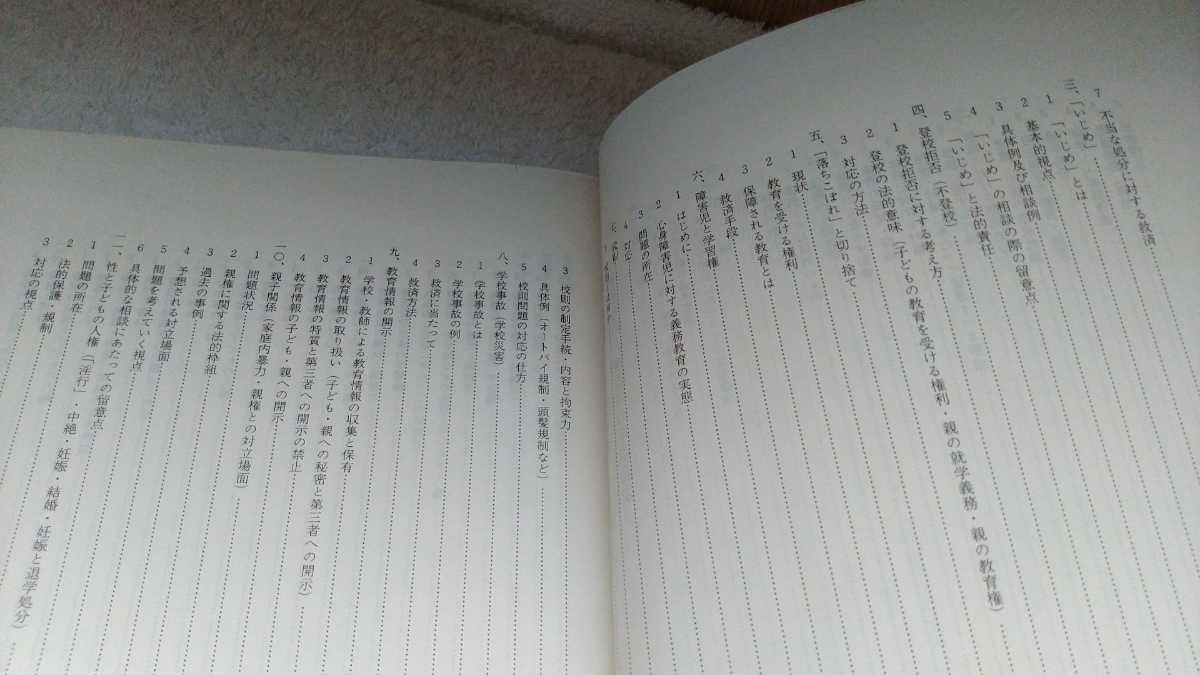 7 不当な処分に対する救済
三、「いじめ」
1 「いじめ」とは
2 基本的視点
3 具体例及び相談例
4 「いじめ」の相談の際の留意点
5 「いじめ」と法的責任
四、登校拒否(不登校)
1 登校拒否に対する考え方
2 登校の法的意味(子どもの教育を受ける権利・親の就学義務・親の教育権)
3 対応の方法
五、「落ちこぼれ」と切り捨て
1 現状
2 教育を受ける権利
3 保障される教育とは
4 救済手段
六、障害児と学習権
1 はじめに
2 心身障害児に対する義務教育の実態
3 問題の所在
4 対応
七、校則
3 校則の制定手続・内容と拘束力
4 具体例(オートバイ規制・頭髪規制など)
5 校則問題の対応の仕方
八、学校事故(学校災害)
1 学校事故とは
2 学校事故の例
3 救済に当たって
4 救済方法
九、教育情報の開示
1 学校・教師による教育情報の収集と保有
2 教育情報の取り扱い(子ども・親への秘密と第三者への開示)
3 教育情報の特質と第三者への開示の禁止
4 教育情報の子ども・親への開示
一〇、親子関係(家庭内暴力・親権との対立場面)
1 問題状況
2 親権に関する法的枠組
3 過去の事例
4 予想される対立場面
5 問題を考えていく視点
6 具体的な相談にあたっての留意点
一一、性と子どもの人権(「淫行」・中絶・妊娠・結婚・妊娠と退学処分)
1 問題の所在
2 法的保護・規制
3 対応の視点